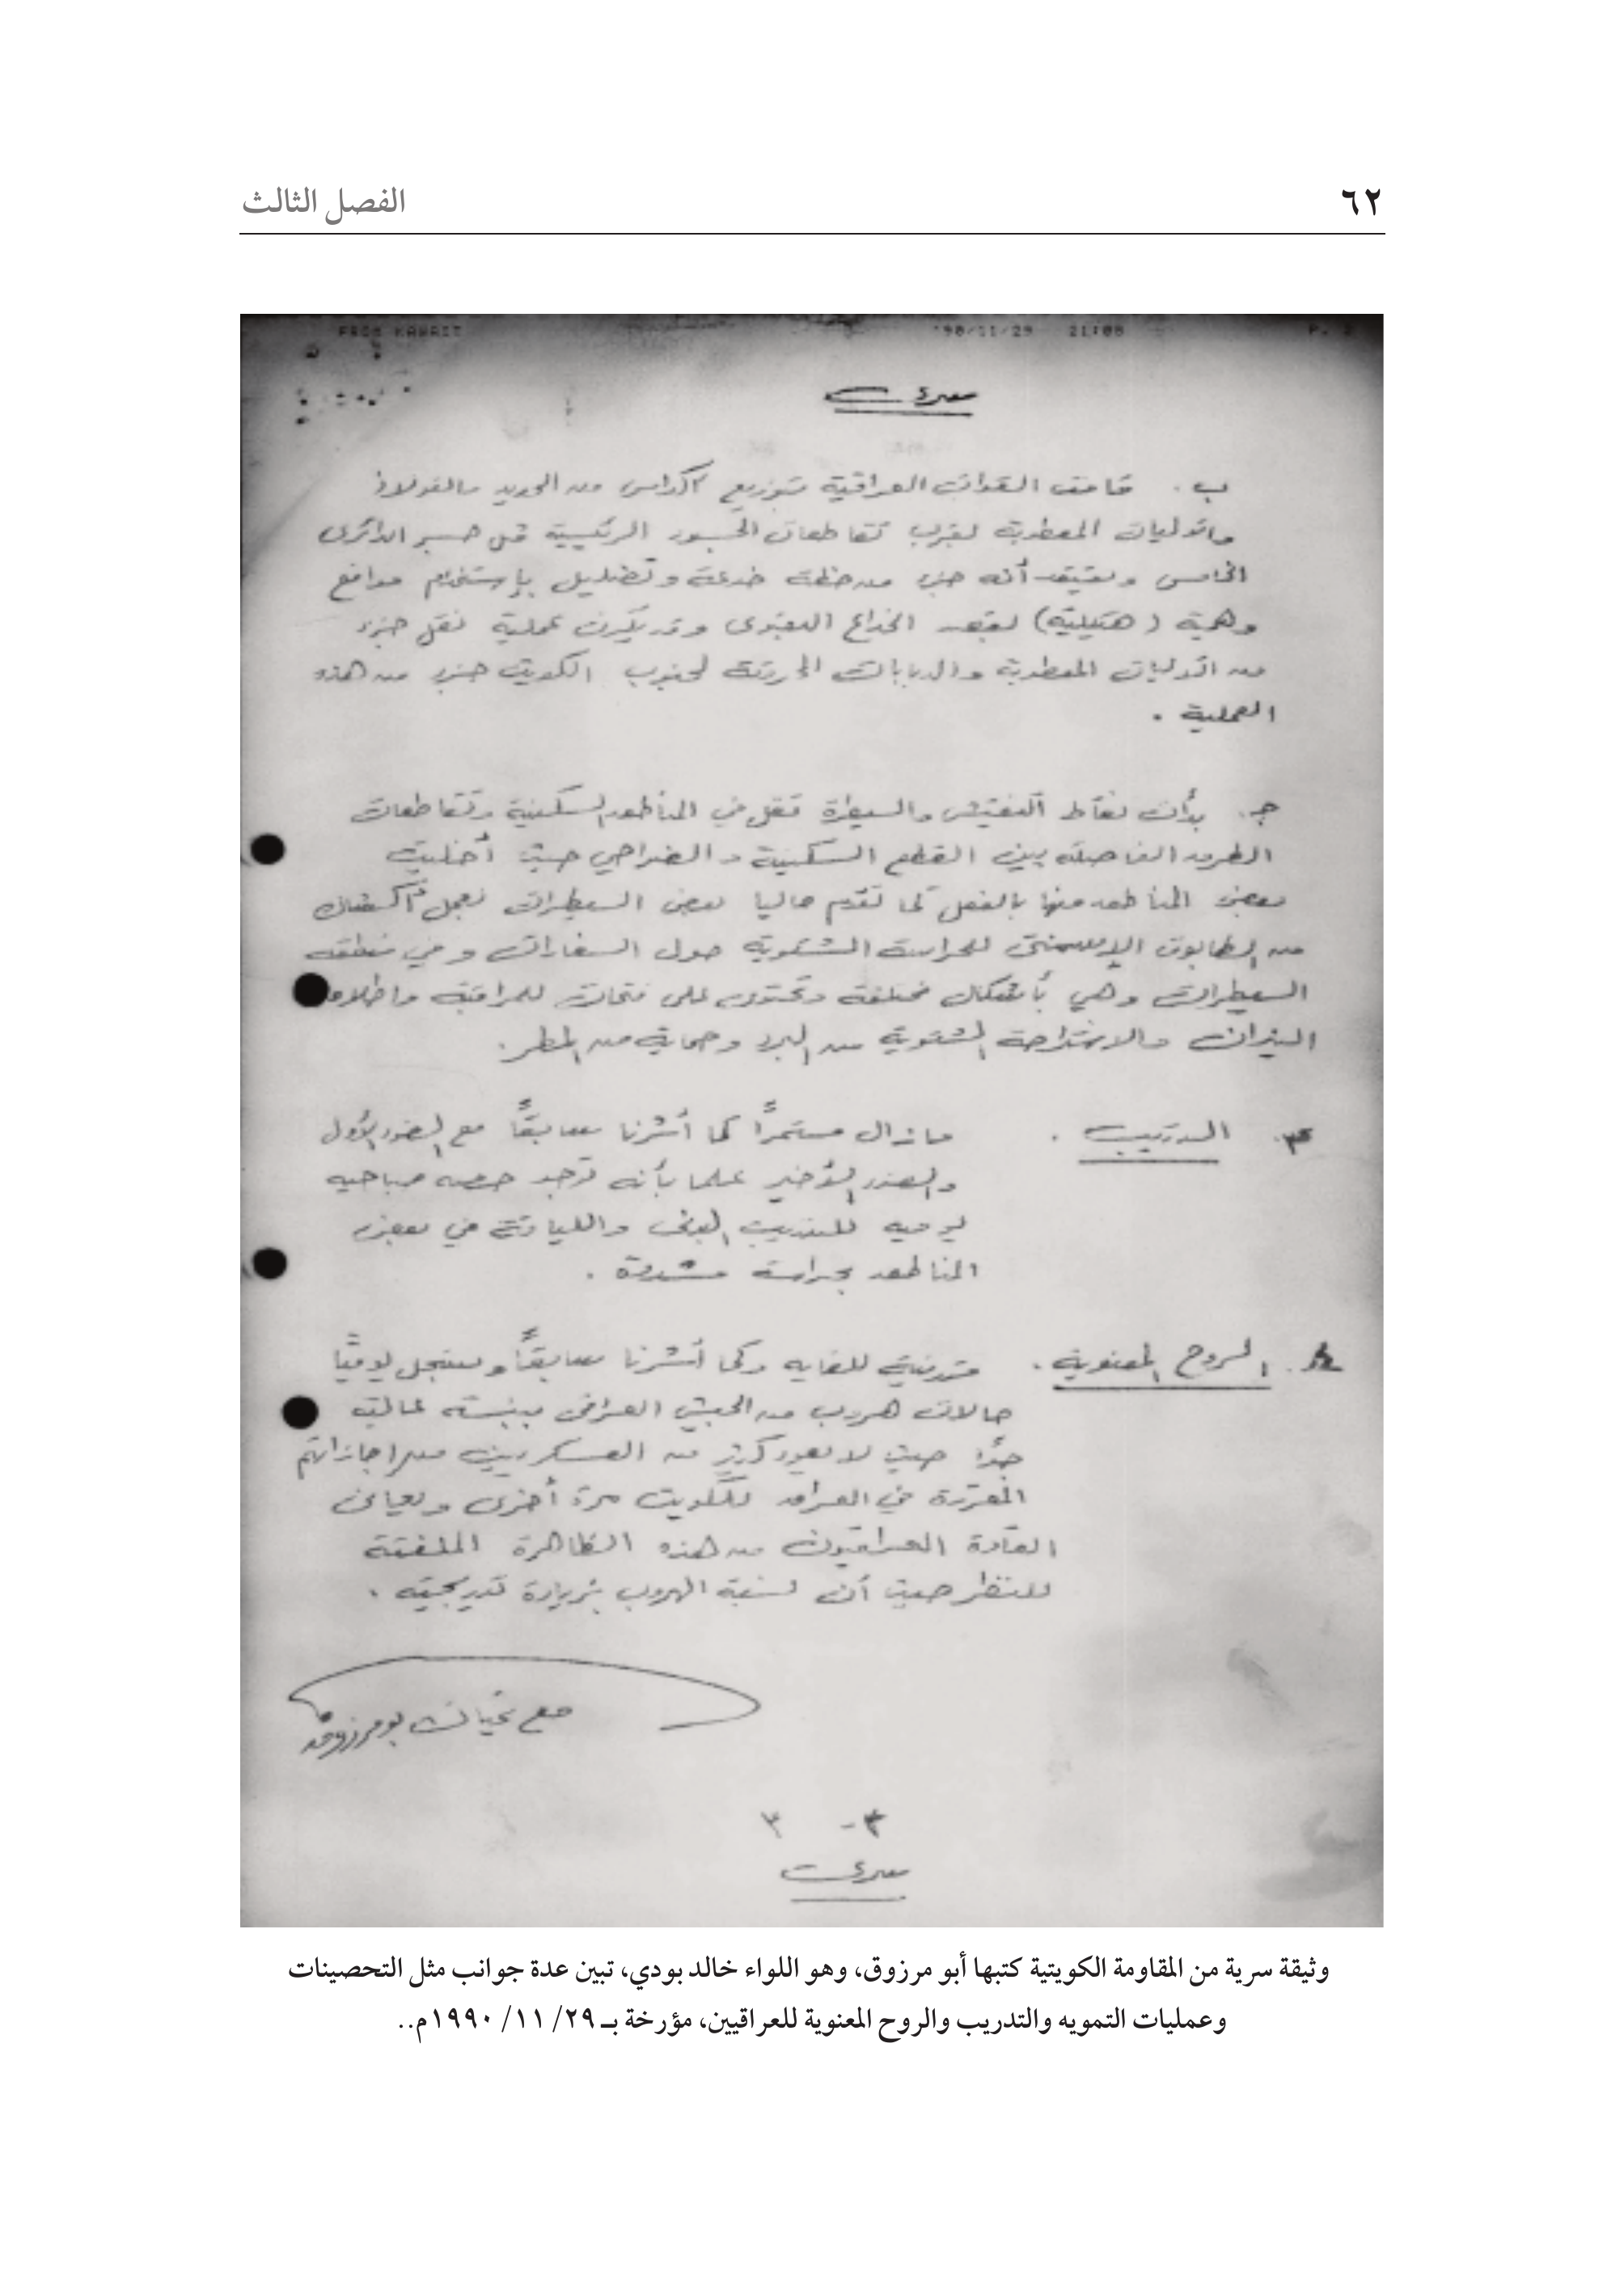 ٦٢
الفصل الثالث
FROM KUWAIT '90/11/29 21:08 P.
سري
ب. قامت القوات العراقية بتوزيع أكداس من الحديد والفولاذ
والآليات المعطوبة بقرب تقاطعات الجسور الرئيسية مثل جسر الدائري
الخامس ونعتقد أنه جزء من خطة خدعة وتضليل بإستخدام مواقع
وهمية (هيكلية) بقصد الخداع التعبوي وقد يكون عملية نقل جزء
من الآليات المعطوبة والدبابات المحروقة لجنوب الكويت جزء من هذه
العملية .
جـ. بدأت نقاط التفتيش والسيطرة تقل في المناطق السكنية وتقاطعات
الطرق الفاصلة بين القطع السكنية والضواحي حيث أخليت
بعض المناطق منها بالفعل كما تقوم حاليا بعض السيطرات بعمل أكشاك
من الطابوق الإسمنتي للحراسة الشتوية حول السفارات وفي منطقة
السيطرات وهي بأشكال مختلفة وتحتوي على فتحات للمراقبة واطلاق
النيران والاستراحة الشتوية من البرد وحماية من المطر.
٣. التدريب . مازال مستمراً كما أشرنا سابقاً مع الضوء الأول
والضوء الأخير علما بأنه توجد حصة صباحية
يومية للتدريب البدني واللياقة في بعض
المناطق بحراسة مشددة .
٤. الروح المعنوية . متدنية للغاية وكما أشرنا سابقاً ونسجل يومياً
حالات هروب من الجيش العراقي بنسبة عالية
جداً حيث لا يعود كثير من العسكريين من إجازاتهم
المقررة في العراق للكويت مرة أخرى ويعاني
القادة العراقيون من هذه الظاهرة الملفتة
للنظر حيث أن نسبة الهروب بزيادة تدريجية .
مع تحيات بو مرزوق
٣ - ٣
سري
وثيقة سرية من المقاومة الكويتية كتبها أبو مرزوق، وهو اللواء خالد بودي، تبين عدة جوانب مثل التحصينات
وعمليات التمويه والتدريب والروح المعنوية للعراقيين، مؤرخة بـ ٢٩/ ١١/ ١٩٩٠م..